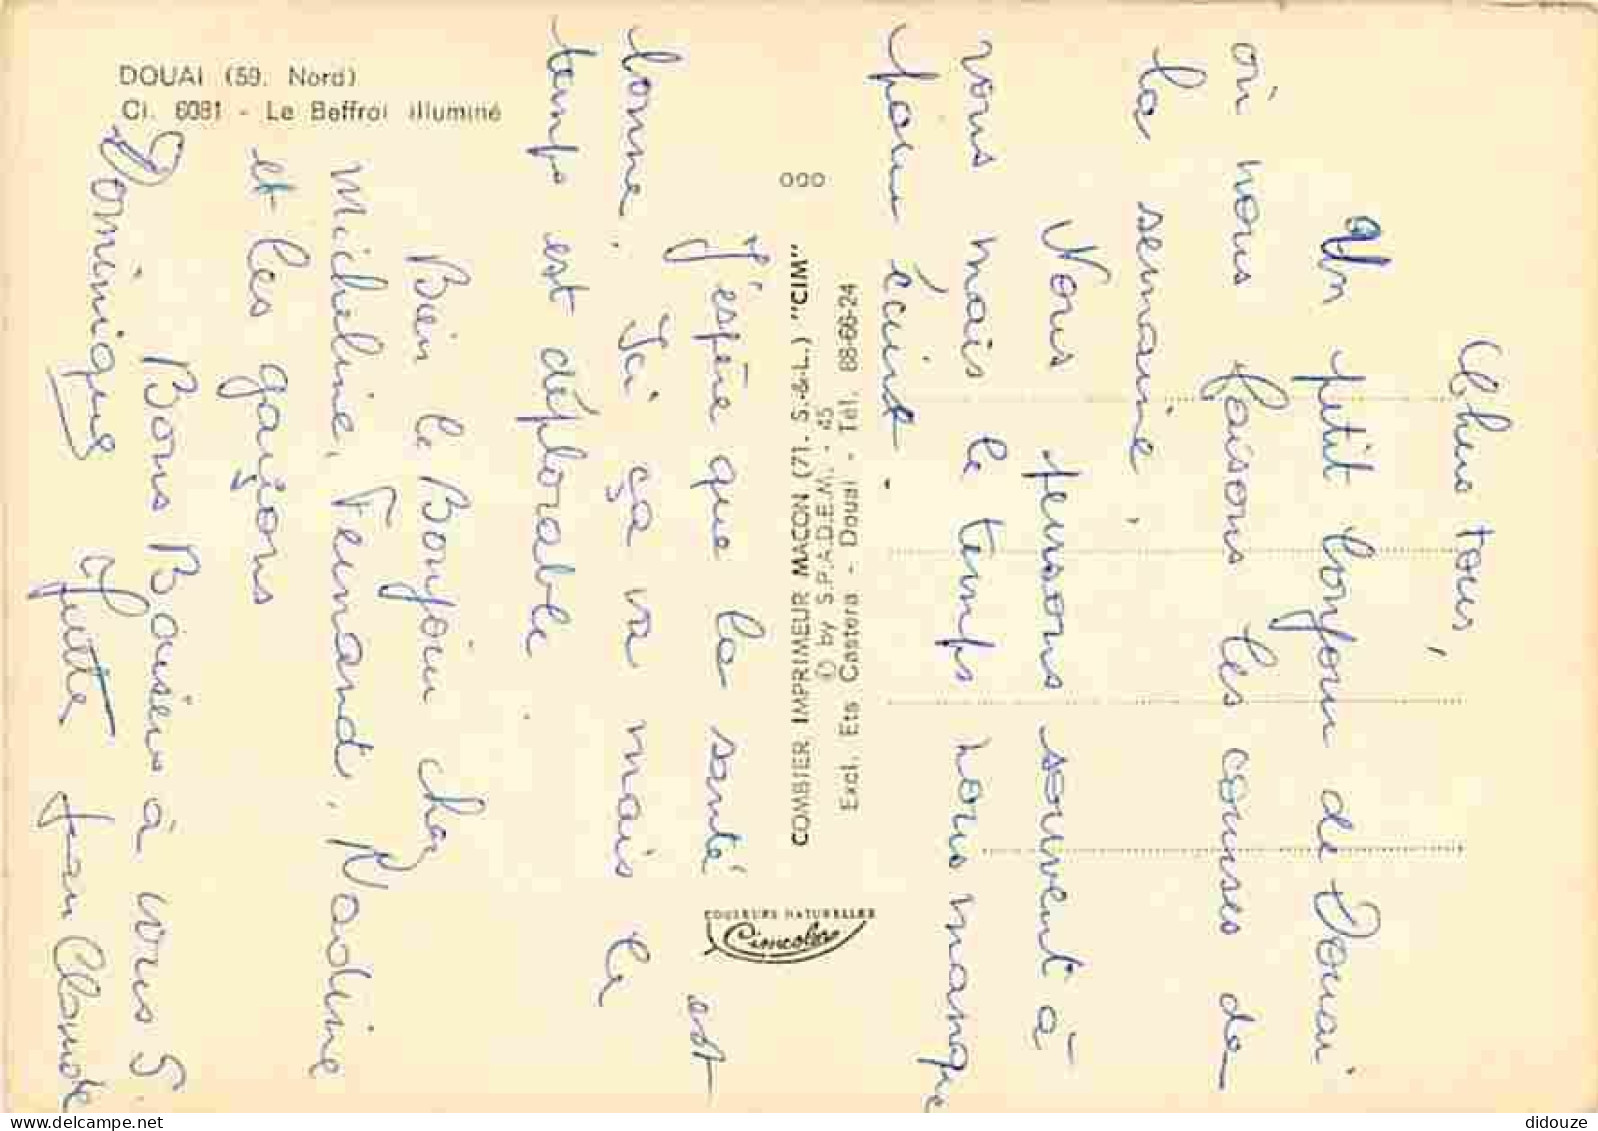 DOUAI (59. Nord)
Ci. 6081 - Le Beffroi illuminé
Chers tous,
Un petit bonjour de Douai
où nous faisons les courses de
la semaine.
Nous pensons souvent à
vous mais le temps nous manque
pour écrire.
J'espère que la santé est
bonne. Ici ça va mais le
temps est déplorable.
Bien le Bonjour chez
Micheline, Fernand, Nadine
et les garçons
Bons Baisers à vous 5
Dominique Yvette Jean Claude
COMBIER IMPRIMEUR MACON (71. S.-&-L.) "CIM"
© by S.P.A.D.E.M. - 45
Excl. Ets Castera - Douai - Tél. 88-66-24
COULEURS NATURELLES
Cimcolor
delcampe.net
didouze